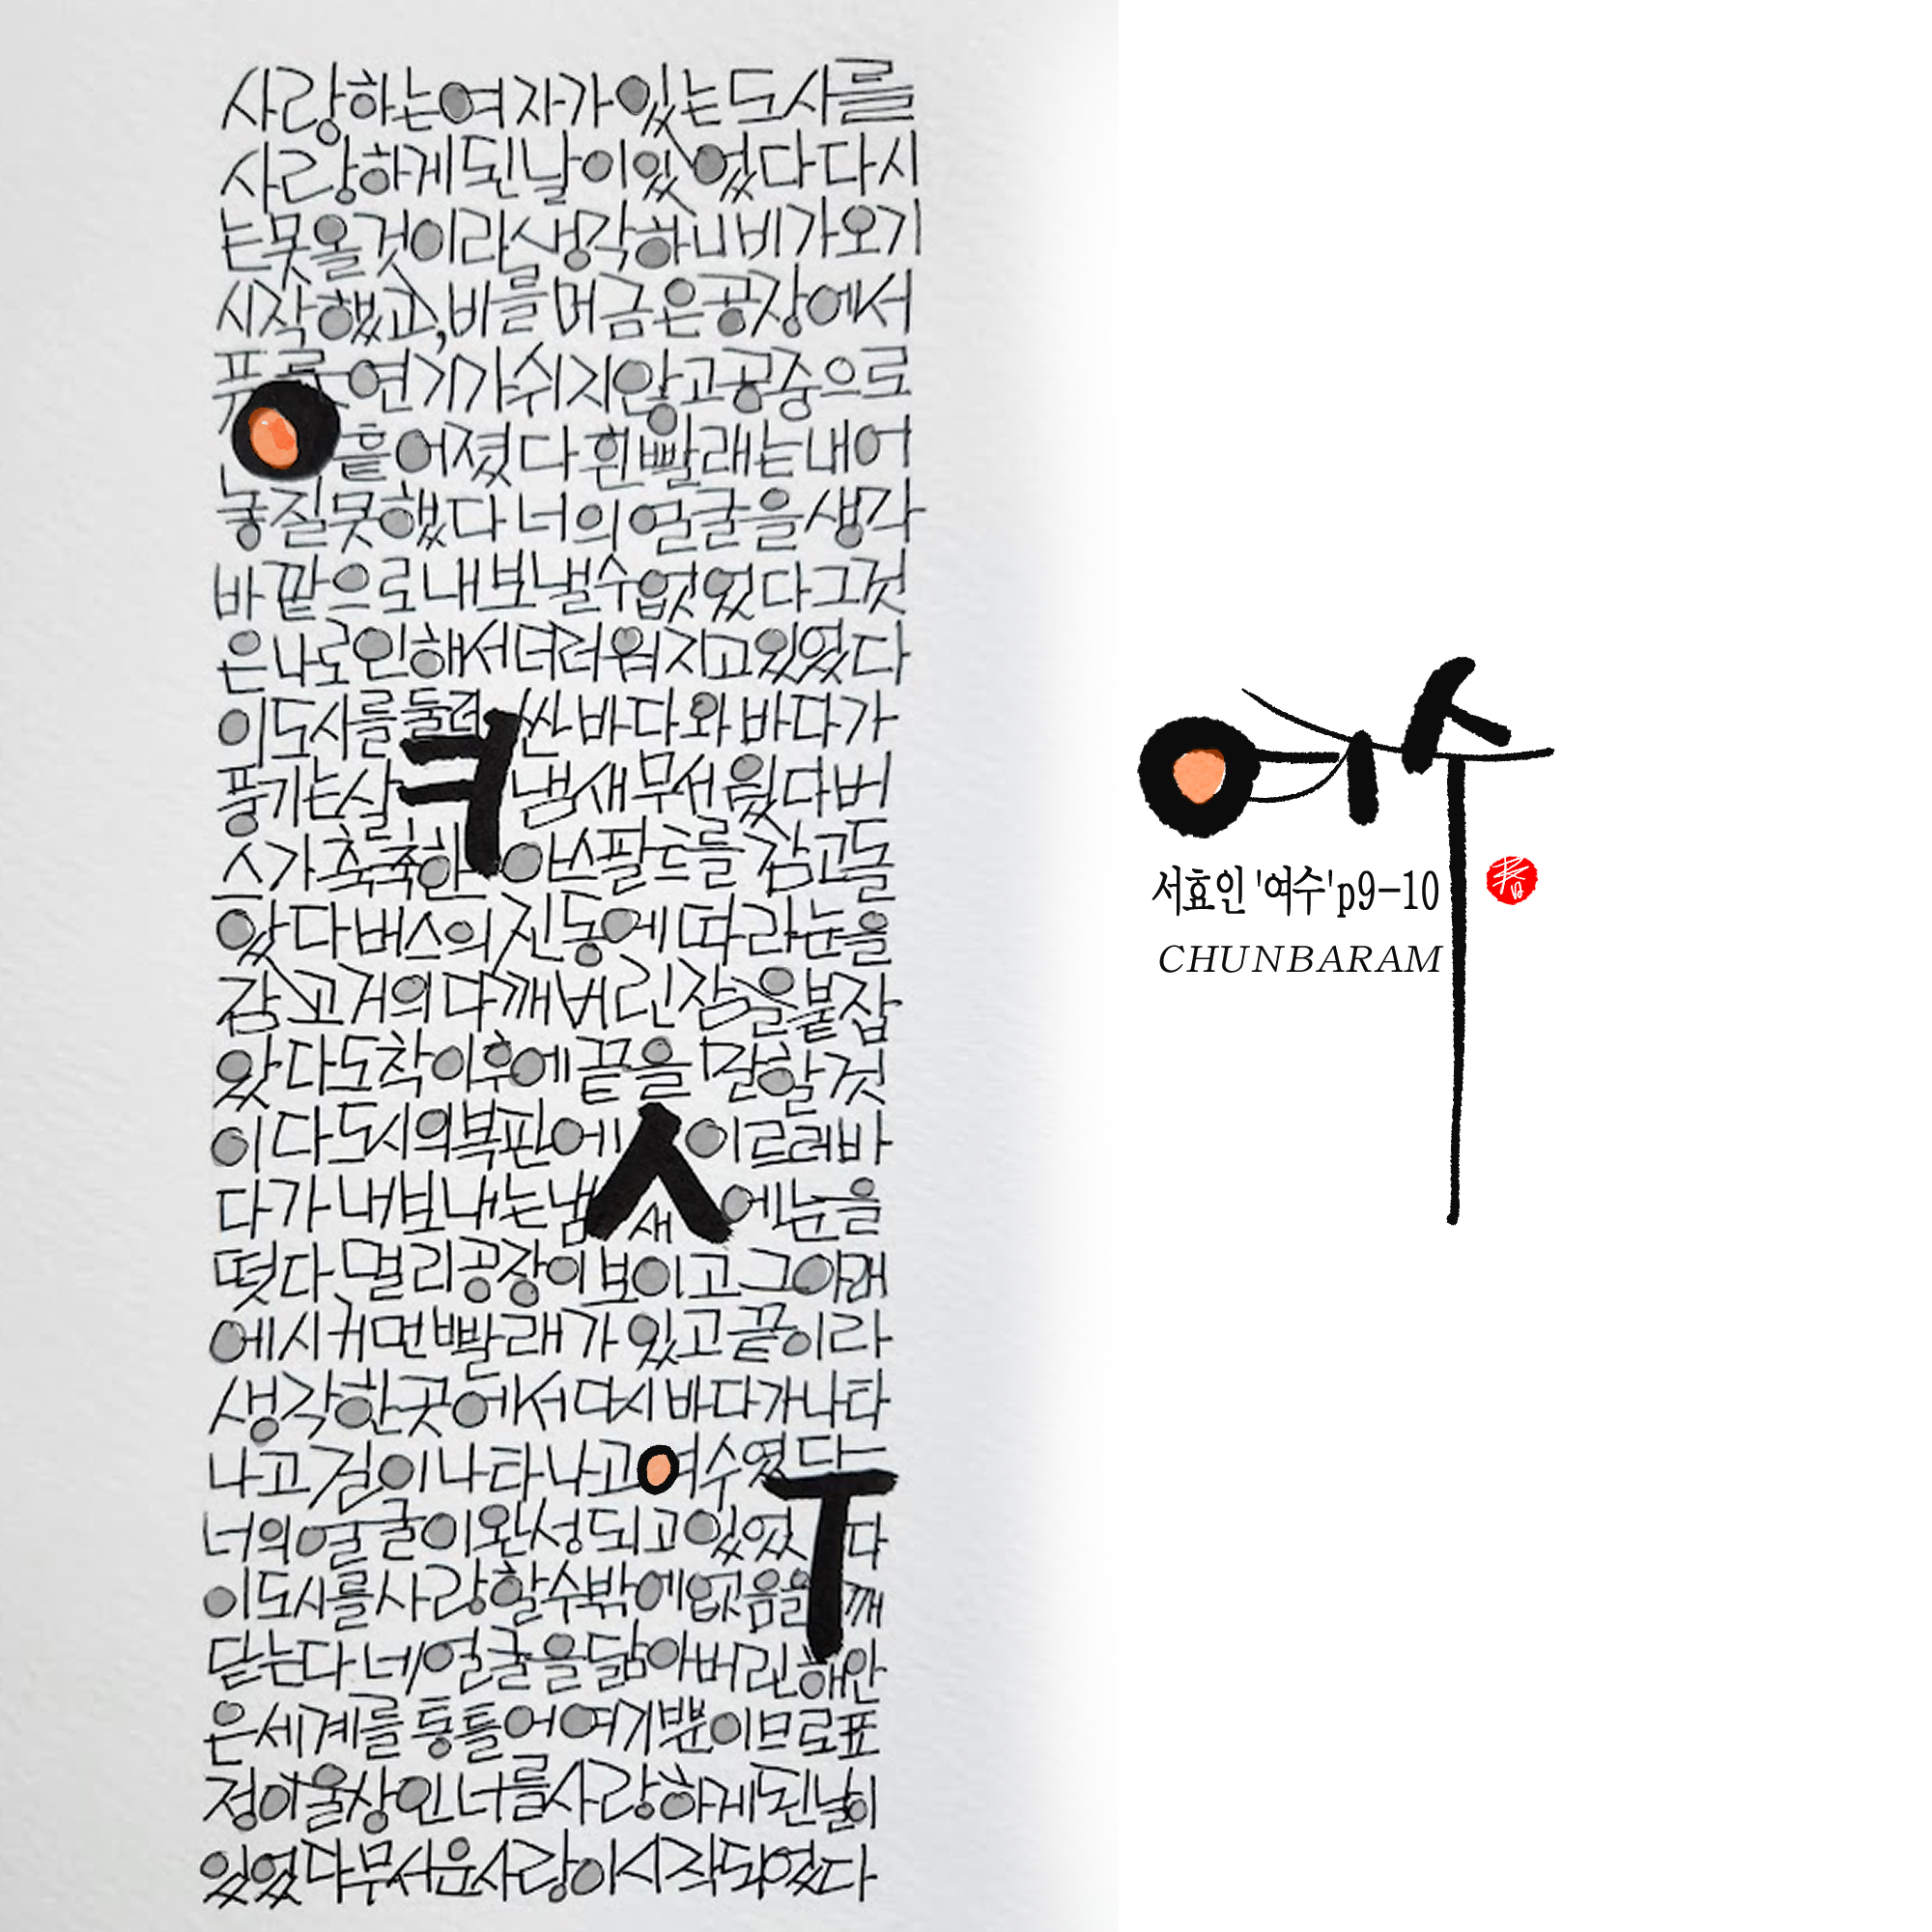 사랑하는여자가있는도시를
사랑하게된날이있었다다시
는못올것이라생각하니비가오기
시작했고,비를머금은공장에서
푸른연기가쉬지않고공중으로
흩어졌다흰빨래는내어
놓질못했다너의얼굴을생각
바깥으로내보낼수없었다그것
은나로인해서더러워지고있었다
이도시를둘러싼바다와바다가
풍기는살냄새무서웠다버
스가축축한아스팔트를감고돌
았다버스의진동에따라눈을
감고거의다깨버린잠을붙잡
았다도착이후에끝을말할것
이다도시의복판에이르러바
다가내보내는냄새에눈을
떴다멀리공장이보이고그아래
에시커먼빨래가있고끝이라
생각한곳에서다시바다가나타
나고길이나타나고여수였다
너의얼굴이완성되고있었다
이도시를사랑할수밖에없음을깨
닫는다네얼굴을닮아버린해안
은세계를통틀어여기뿐이므로표
정이울상인너를사랑하게된날이
있었다무서운사랑이시작되었다
여수
여수
서효인 '여수'p9-10
CHUNBARAM